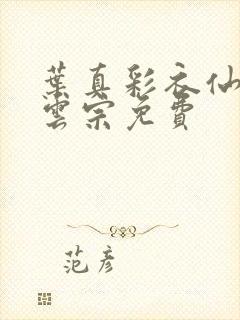 葉真彩衣仙
雲宗免費
范彥